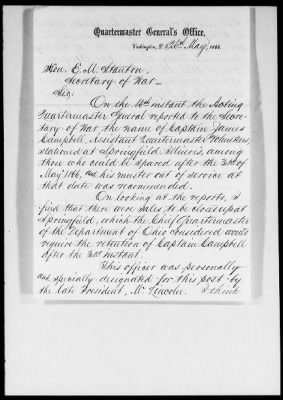 Quartermaster General's Office,
Washington, D.C. 26th May, 1866.
Hon. E. M. Stanton,
Secretary of War —
Sir:
On the 16th instant the Acting
Quartermaster General reported to the Secre-
tary of War the name of Captain James
Campbell, Assistant Quartermaster Volunteers,
stationed at Springfield, Illinois, among
those who could be spared after the 31st of
May 1866, and his muster out of service at
that date was recommended.
On looking at the reports, I
find that there are sales to be closed up at
Springfield, which the Chief Quartermaster
of the Department of Ohio considered would
require the retention of Captain Campbell
after the 31st instant.
This officer was personally
and specially designated for this post by
the late President, Mr. Lincoln. I think